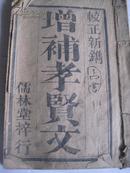 較正新鐫
增補孝賢文
儒林堂梓行